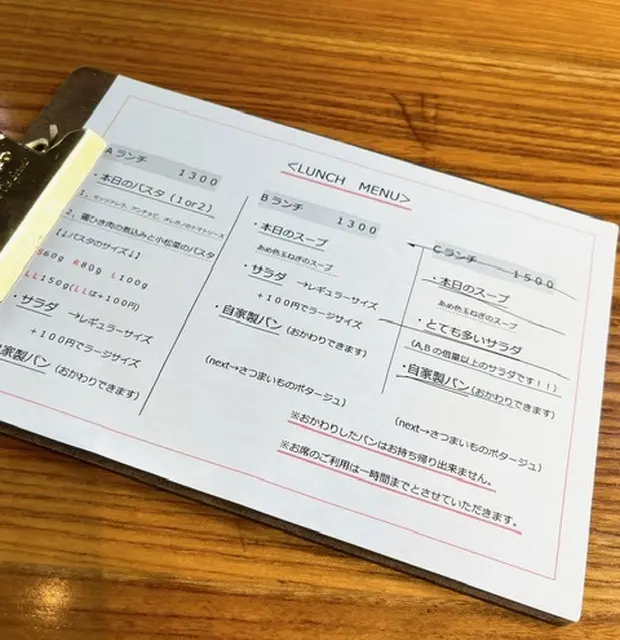 <LUNCH MENU>
Aランチ 1300
・本日のパスタ(1or2)
1、モッツァレラ、アンチョビ、オレガノのトマトソース
2、粗びき肉の煮込みと小松菜のパスタ
【↓パスタのサイズ↓】
S60g R80g L100g
LL150g(LLは+100円)
・サラダ →レギュラーサイズ
+100円でラージサイズ
自家製パン(おかわりできます)
Bランチ 1300
・本日のスープ
あめ色玉ねぎのスープ
・サラダ →レギュラーサイズ
+100円でラージサイズ
・自家製パン(おかわりできます)
(next→さつまいものポタージュ)
Cランチ 1500
・本日のスープ
あめ色玉ねぎのスープ
・とても多いサラダ
(A,Bの倍量以上のサラダです!!)
・自家製パン(おかわりできます)
(next→さつまいものポタージュ)
※おかわりしたパンはお持ち帰り出来ません。
※お席のご利用は一時間までとさせていただきます。